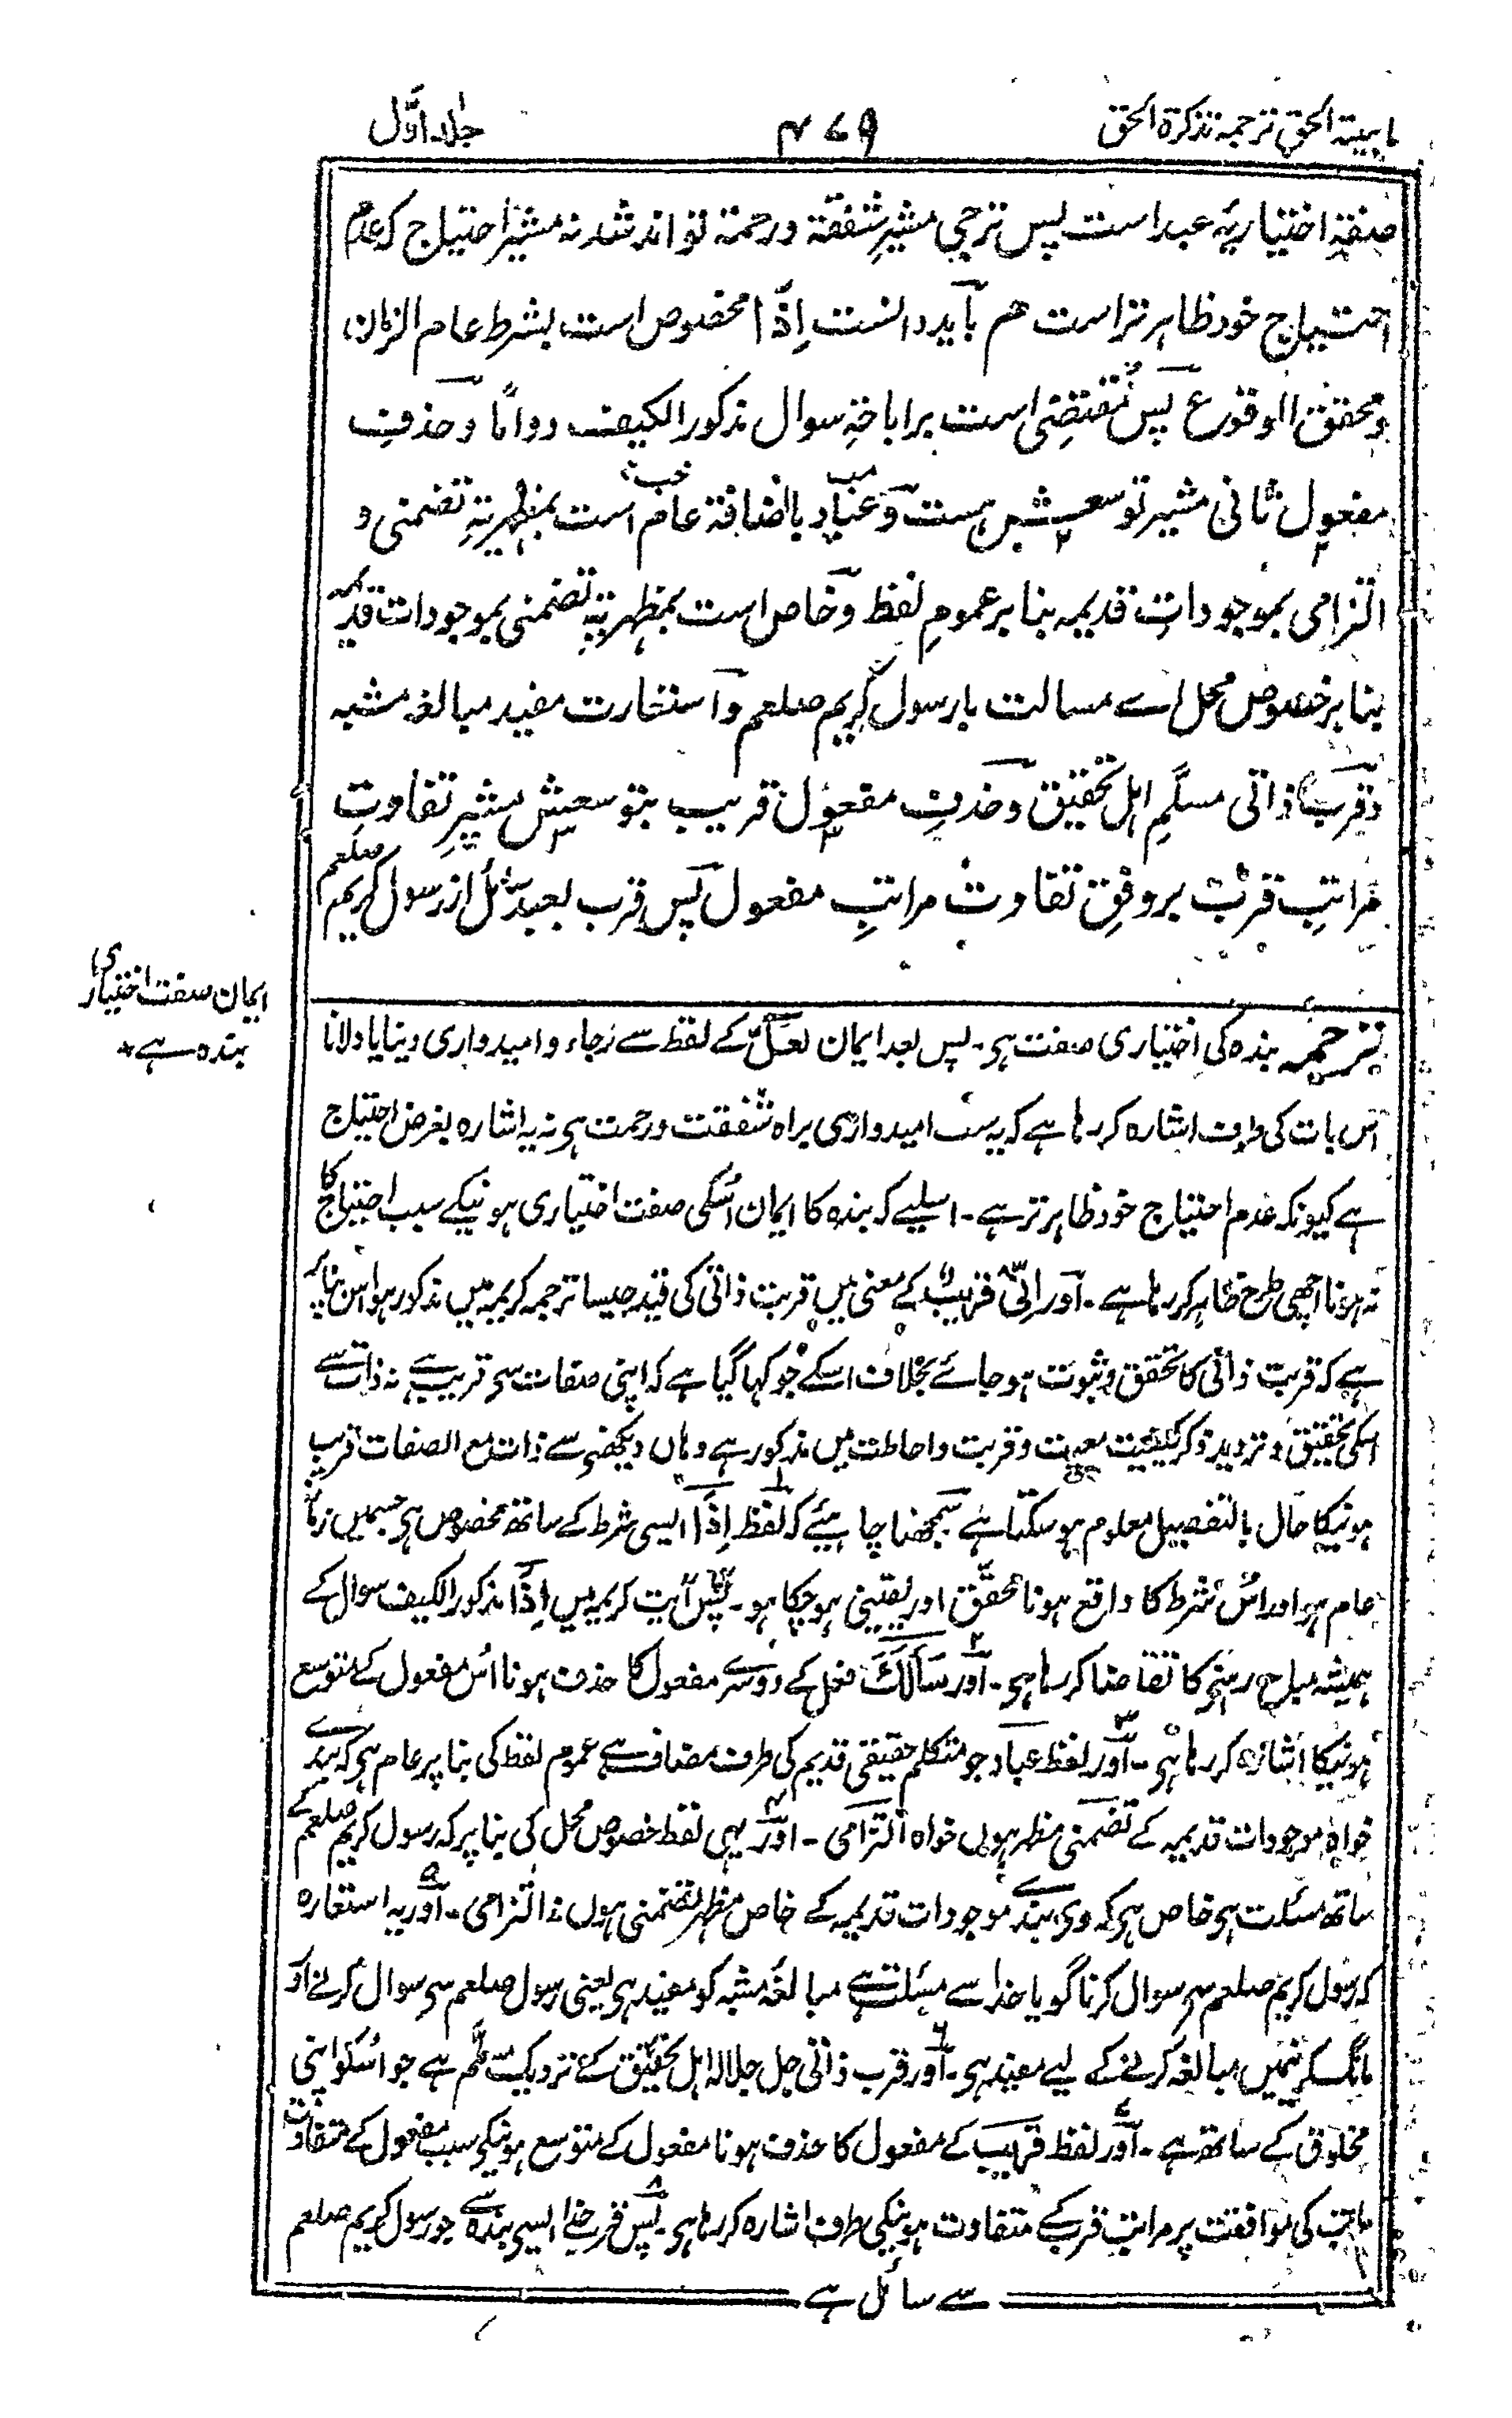 ماہیتہ الحق ترجمہ تذکرۃ الحق
۴۷۹
جلد اوّل
صفتہ اختیاریہ عبد است پس ترجی مشیرِ شفقتہ و رحمتہ تواند شد نہ مشیرِ احتیاج کہ عدم
احتیاج خود ظاہر تر است ہم باید دانست اِذَا مخصوص است بشرط عام الزمان
و محقق الوقوع پس مُقتضِی است بر اباحۃِ سوال مذکور الکیف دوامًا و حذفِ
مفعول ثانی مشیر توسعش ہست و عباد باضافۃ عام است بمظہریتہِ تضمنی و
التزامی بموجوداتِ قدیمہ بنا بر عمومِ لفظ و خاص است بمظہریتہِ تضمنی بموجودات قدیمہ
بنا بر خصوص محل اے مسالت با رسول کریم صلعم و استعارت مفید مبالغہ مشبہ
و قرب ذاتی مسلّمِ اہل تحقیق و حذفِ مفعول قریب بتوسعش مشیرِ تفاوتِ
مراتبِ قرب بر وفقِ تفاوت مراتبِ مفعول پس قرب بعبد سائل از رسول کریم صلعم
ایمان صفت اختیاری
بندہ ہے
ترجمہ بندہ کی اختیاری صفت ہی۔ پس بعد ایمان لعلّ کے لفظ سے رجاء و امیدواری دینا یا دلانا
اس بات کی طرف اشارہ کر رہا ہے کہ یہ سب امیدواری براہ شفقت و رحمت ہی نہ یہ اشارہ بغرض احتیاج
ہے کیونکہ عدم احتیاج خود ظاہر تر ہے۔ اسلیے کہ بندہ کا ایمان اُسکی صفت اختیاری ہونیکے سبب احتیاج کا
نہ ہونا اچھی طرح ظاہر کر رہا ہے۔ اور انّی قریبٌ کے معنی میں قربت ذاتی کی قید جیسا ترجمہ کریمہ میں مذکور ہوا اس بنا پر
ہے کہ قربت ذاتی کا تحقق و ثبوت ہو جائے بخلاف اسکے جو کہا گیا ہے کہ اپنی صفات سے قریب ہے نہ ذات سے
اسکی تحقیق و تردید ذکر کیفیت معیت و قربت و احاطت میں مذکور ہے وہاں دیکھنے سے ذات مع الصفات قریب
ہونیکا حال بالتفصیل معلوم ہو سکتا ہے سمجھنا چاہیئے کہ لفظ اِذَا ایسی شرط کے ساتھ مخصوص ہی جسمیں زمانہ
عام ہو اور اُس شرط کا واقع ہونا محقق اور یقینی ہو چکا ہو۔ پس آیت کریمہ میں اِذَا مذکور الکیف سوال کے
ہمیشہ مباح رہنے کا تقاضا کر رہا ہی۔ اور سَأَلَكَ فعل کے دوسرے مفعول کا حذف ہونا اُس مفعول کے متوسع
ہونیکا اشارہ کر رہا ہی۔ اور لفظ عباد جو متکلم حقیقی قدیم کی طرف مضاف ہے عموم لفظ کی بنا پر عام ہی کہ بندے
خواہ موجودات قدیمہ کے تضمنی مظہر ہوں خواہ التزامی۔ اور یہی لفظ خصوص محل کی بنا پر کہ رسول کریم صلعم کے
ساتھ مسئلت ہی خاص ہی کہ وہی بندے موجودات قدیمہ کے خاص مظہر تضمنی ہوں نہ التزامی۔ اور یہ استعارہ
کہ رسول کریم صلعم سے سوال کرنا گویا خدا سے مسئلت ہے مبالغہ مشبہ کو مفید ہی یعنی رسول صلعم سے سوال کرنے اور
مانگنے میں مبالغہ کرنے کے لیے مفید ہی۔ اور قرب ذاتی جل جلالہ اہل تحقیق کے نزدیک مسلّم ہے جو اُسکو اپنی
مخلوق کے ساتھ ہے۔ اور لفظ قریب کے مفعول کا حذف ہونا مفعول کے متوسع ہونیکے سبب مفعول کے متفاوت
مراتب کی موافقت پر مراتب قرب کے متفاوت ہونیکی طرف اشارہ کر رہا ہی۔ پس قرب خدا ایسی بندہ سے جو رسول کریم صلعم
سے سائل ہے